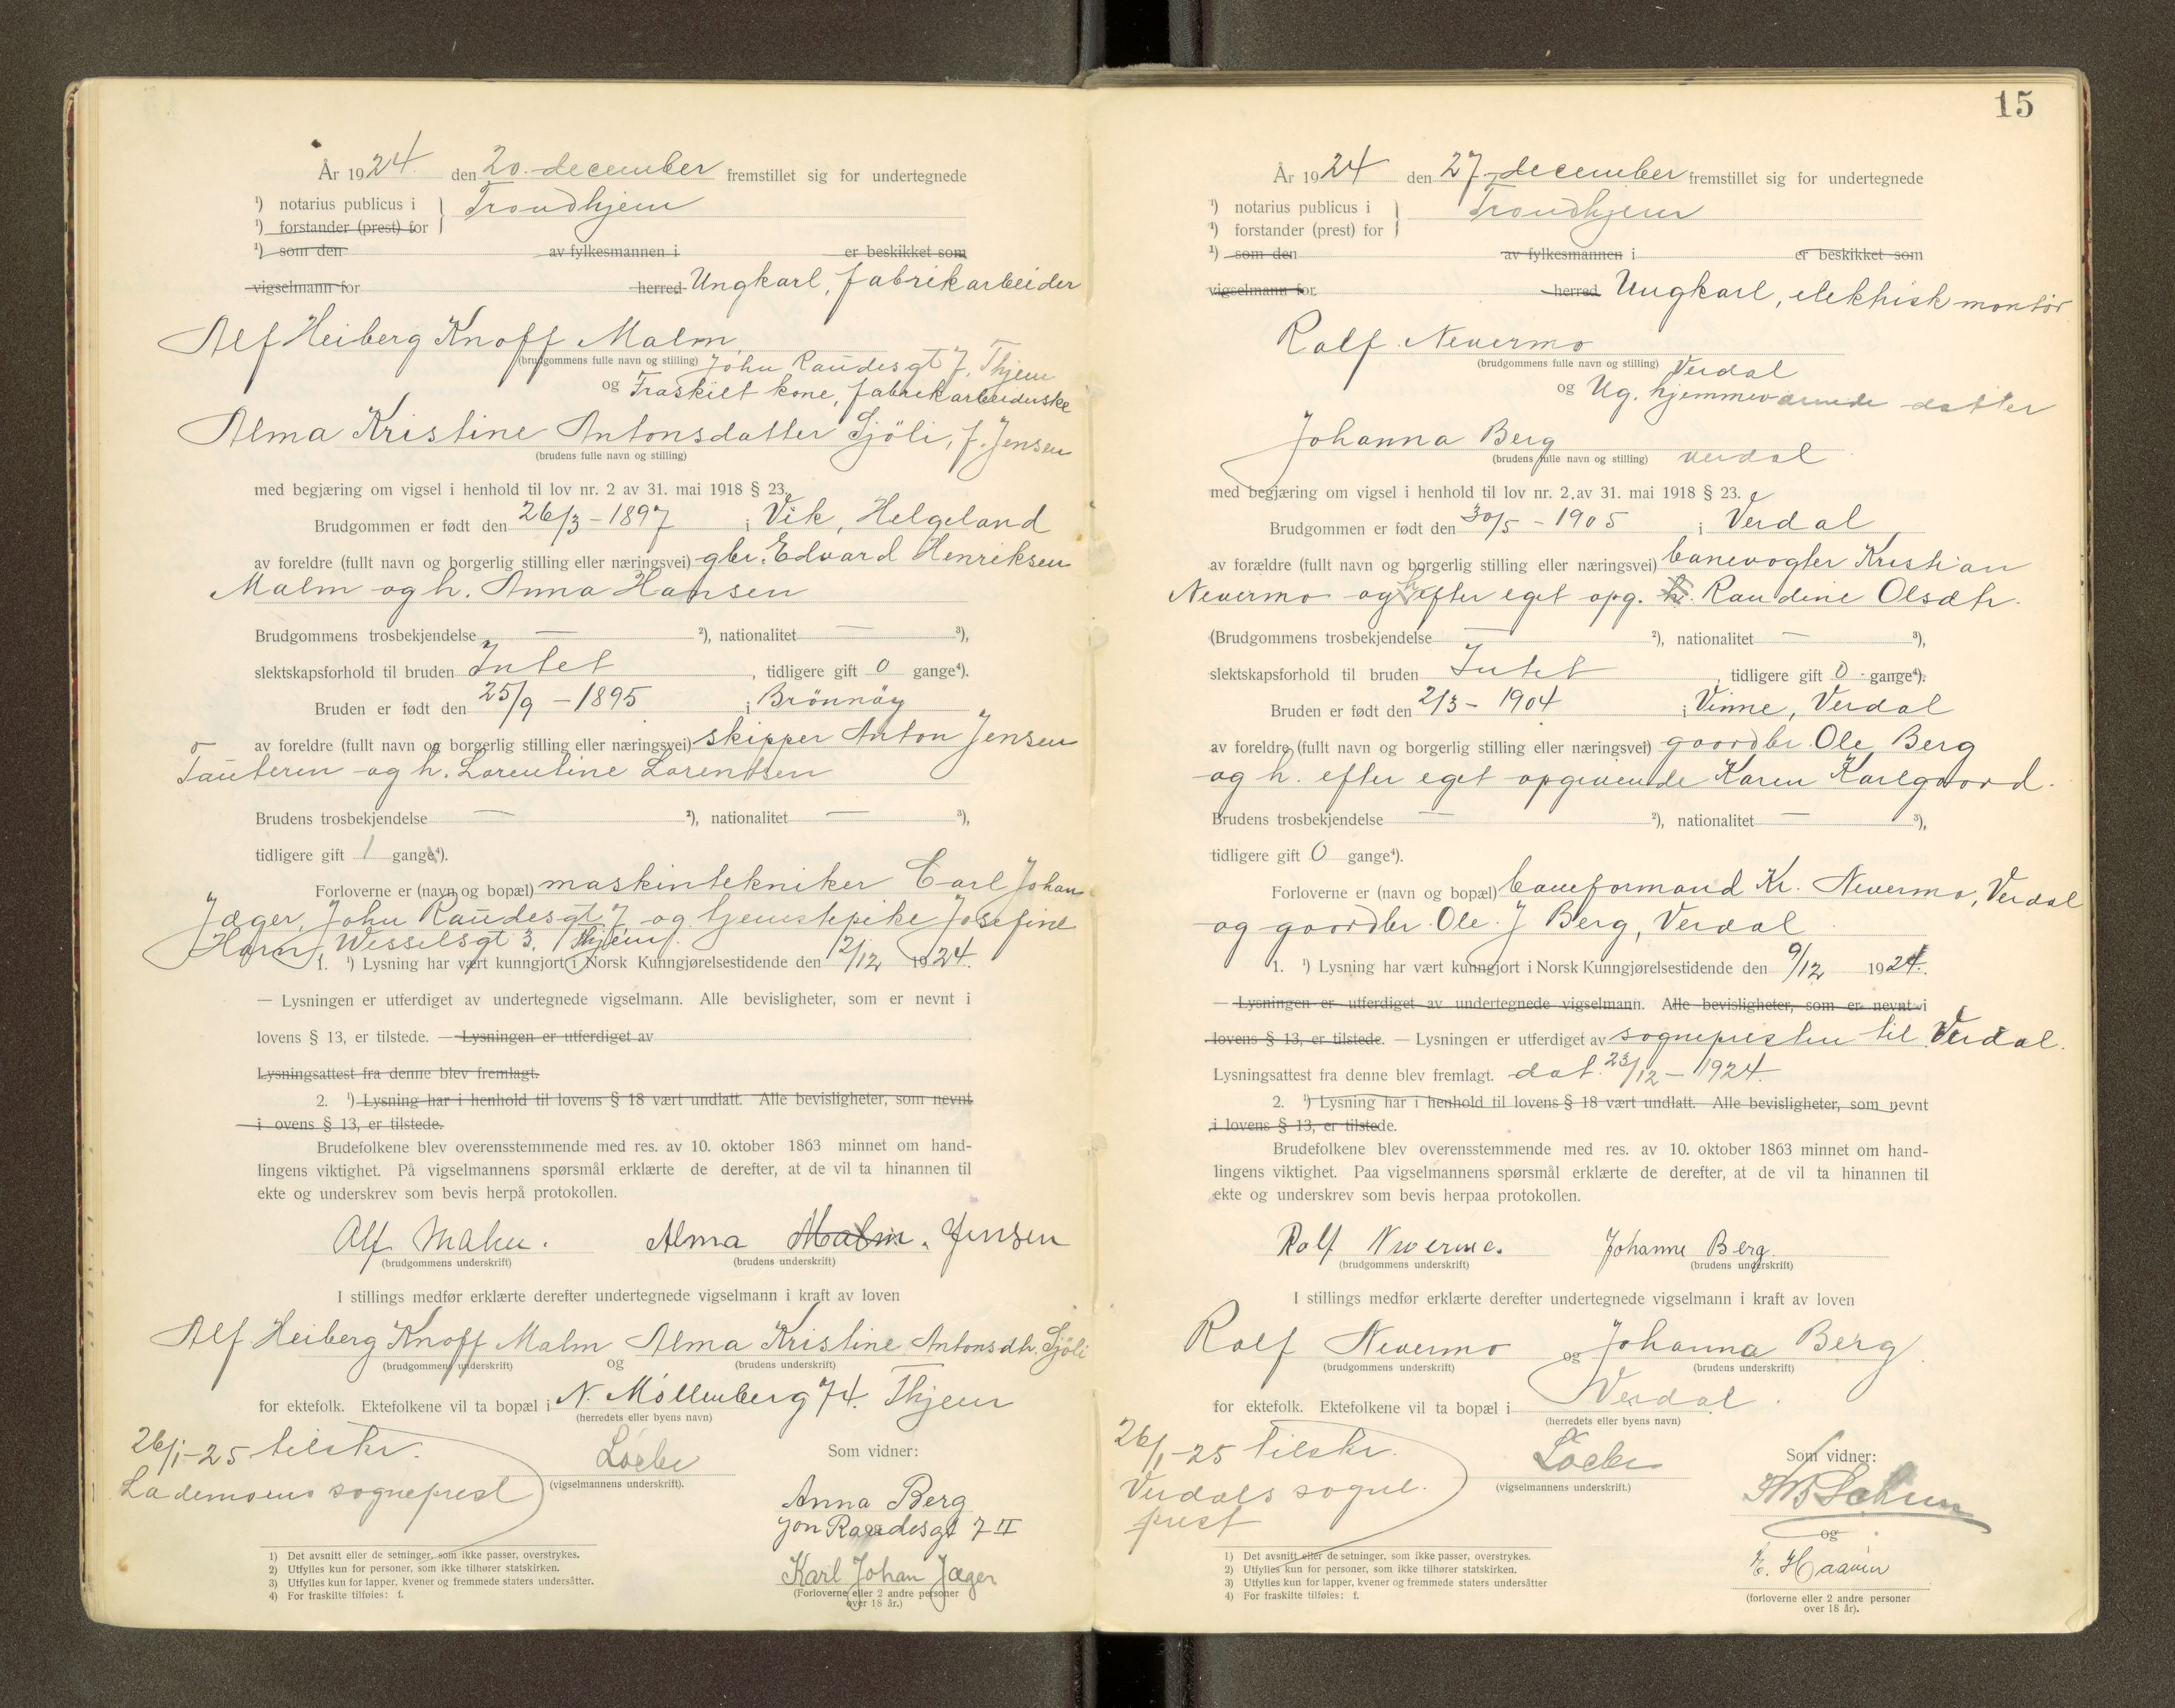 År 1924. den 20. december fremstillet sig for undertegnede
¹) notarius publicus i } Trondhjem
¹) forstander (prest) for
¹) som den av fylkesmannen i er beskikket som
vigselmann for herred Ungkarl, fabrikarbeider
Alf Heiberg Knoff Malm
(brudgommens fulle navn og stilling) John Raudesgt 7. Thjem
og Fraskilt kone, fabrikarbeiderske
Alma Kristine Antonsdatter Sjöli, f. Jensen
(brudens fulle navn og stilling)
med begjæring om vigsel i henhold til lov nr. 2 av 31. mai 1918 § 23.
Brudgommen er født den 26/3 - 1897 i Vik, Helgeland
av foreldre (fullt navn og borgerlig stilling eller næringsvei) gbr. Edvard Henriksen
Malm og h. Anna Hansen
Brudgommens trosbekjendelse — ²), nationalitet — ³),
slektskapsforhold til bruden Intet, tidligere gift 0 gange⁴).
Bruden er født den 25/9 - 1895 i Brönnöy
av foreldre (fullt navn og borgerlig stilling eller næringsvei) skipper Anton Jensen
og h. Lorentine Lorentsen
Brudens trosbekjendelse — ²), nationalitet — ³),
tidligere gift 1 gange⁴).
Forloverne er (navn og bopæl) maskintekniker Carl Johan
Jæger, John Raudesgt 7 og tjenestepike Josefine
Horn, Wesselsgt 3. Thjem.
1. ¹) Lysning har vært kunngjort i Norsk Kunngjørelsestidende den 12/12 1924.
— Lysningen er utferdiget av undertegnede vigselmann. Alle bevisligheter, som er nevnt i
lovens § 13, er tilstede. — Lysningen er utferdiget av
Lysningsattest fra denne blev fremlagt.
2. ¹) Lysning har i henhold til lovens § 18 vært undlatt. Alle bevisligheter, som nevnt
i ovens § 13, er tilstede.
Brudefolkene blev overensstemmende med res. av 10. oktober 1863 minnet om hand-
lingens viktighet. På vigselmannens spørsmål erklærte de derefter, at de vil ta hinannen til
ekte og underskrev som bevis herpå protokollen.
Alf Malm. Alma Malm. Jensen
(brudgommens underskrift) (brudens underskrift)
I stillings medfør erklærte derefter undertegnede vigselmann i kraft av loven
Alf Heiberg Knoff Malm Alma Kristine Antonsdtr. Sjöli
(brudgommens underskrift) og (brudens underskrift)
for ektefolk. Ektefolkene vil ta bopæl i N. Möllenberg 74. Thjem
(herredets eller byens navn)
26/1-25 tilskr.
Lademoens sogneprest
(vigselmannens underskrift).
Som vidner:
Anna Berg
Jon Raudesgt 7 II
Karl Johan Jæger
(Forloverne eller 2 andre personer
over 18 år.)
1) Det avsnitt eller de setninger, som ikke passer, overstrykes.
2) Utfylles kun for personer, som ikke tilhører statskirken.
3) Utfylles kun for lapper, kvener og fremmede staters undersåtter.
4) For fraskilte tilføies: f.
15
År 1924 den 27. december fremstillet sig for undertegnede
¹) notarius publicus i } Trondhjem
¹) forstander (prest) for
¹) som den av fylkesmannen i er beskikket som
vigselmann for herred Ungkarl, elektrisk montör
Rolf Nevermo
(brudgommens fulle navn og stilling) Verdal
og Ug. hjemmeværende datter
Johanna Berg
(brudens fulle navn og stilling) Verdal
med begjæring om vigsel i henhold til lov nr. 2.av 31. mai 1918 § 23.
Brudgommen er født den 30/5 - 1905 i Verdal
av forældre (fullt navn og borgerlig stilling eller næringsvei) banevogter Kristian
Nevermo og h. efter eget opg. Raudine Olsdtr.
(Brudgommens trosbekjendelse — ²), nationalitet — ³),
slektskapsforhold til bruden Intet, tidligere gift 0 gange⁴).
Bruden er født den 2/3 - 1904 i Vinne, Verdal
av foreldre (fullt navn og borgerlig stilling eller næringsvei) gaardbr. Ole Berg
og h. efter eget opgivende Karen Karlgaard.
Brudens trosbekjendelse — ²), nationalitet — ³),
tidligere gift 0 gange⁴).
Forloverne er (navn og bopæl) baneformand Kr. Nevermo, Verdal
og gaardbr. Ole J Berg, Verdal
1. ¹) Lysning har vært kunngjort i Norsk Kunngjørelsestidende den 9/12 1924.
— Lysningen er utferdiget av undertegnede vigselmann. Alle bevisligheter, som er nevnt i
lovens § 13, er tilstede. — Lysningen er utferdiget av sognepresten til Verdal.
Lysningsattest fra denne blev fremlagt. dat. 23/12 - 1924.
2. ¹) Lysning har i henhold til lovens § 18 vært undlatt. Alle bevisligheter, som nevnt
i lovens § 13, er tilstede.
Brudefolkene blev overensstemmende med res. av 10. oktober 1863 minnet om hand-
lingens viktighet. Paa vigselmannens spørsmål erklærte de derefter, at de vil ta hinannen til
ekte og underskrev som bevis herpaa protokollen.
Rolf Nevermo. Johanne Berg.
(brudgommens underskrift) (brudens underskrift)
I stillings medfør erklærte derefter undertegnede vigselmann i kraft av loven
Rolf Nevermo og Johanna Berg
(brudgommens underskrift) (brudens underskrift)
for ektefolk. Ektefolkene vil ta bopæl i Verdal.
(herredets eller byens navn)
26/1-25 tilskr.
Verdals sogne-
prest
(vigselmannens underskrift.)
Som vidner:
og
E. Haaven
(forloverne eller 2 andre personer
over 18 år).
1) Det avsnitt eller de setninger, som ikke passer, overstrykes.
2) Utfylles kun for personer, som ikke tilhører statskirken.
3) Utfylles kun for lapper, kvener og fremmede staters undersåtter
4) For fraskilte tilføies: f.